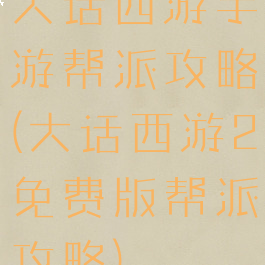 大话西游手
游帮派攻略
(大话西游2
免费版帮派
攻略)